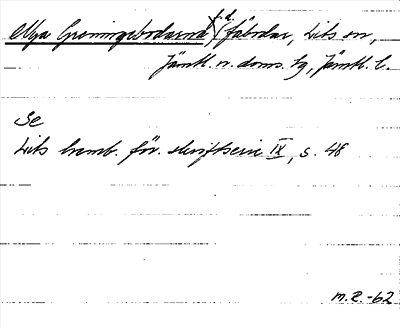 Nya Greningebodarna (f.d. fäbodar, Lits sn,
Jämtl. n. doms. hg, Jämtl. l.
Se
Lits hemb. för. skriftserie IX, s. 48
M.E.-62